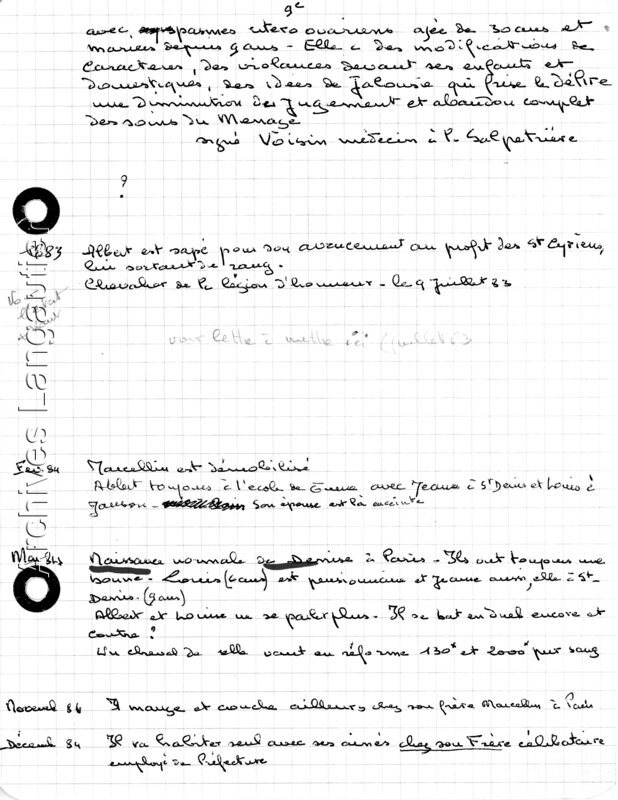 9c
avec spasmes utero ovariens agée de 30 ans et
mariée depuis 9 ans - Elle a des modifications de
caractères, des violences devant ses enfants et
domestiques, des idées de Jalousie qui frise le délire
une diminution des Jugement et abandon complet
des soins du Menage
signé Voisin médecin à la Salpetrière
?
1883 Albert est sapé pour son avancement au profit des St Cyriens,
lui sortant de rang.
Chevalier de la légion d'honneur - le 9 Juillet 83
voir lettre à mettre ici (juillet 83
Archives Langautier
Fev. 84 Marcellin est démobilisé
Albert toujours à l'école de Guerre avec Jeanne à St Denis et Louis à
Janson - son épouse est là enceinte
Mai 84 Naissance normale de Denise à Paris - Ils ont toujours une
bonne - Louis (6 ans) est pensionnaire et Jeanne aussi, elle à St-
Denis. (9 ans)
Albert et Louise ne se parler plus - Il se bat en duel encore et
contre ?
Un cheval de selle vaut en réforme 130 et 2000 pur sang
Novemb 84 Il mange et couche ailleurs, chez son frère Marcellin à Paris
Décemb 84 Il va habiter seul avec ses ainés chez son Frère célibataire
employé de Préfecture